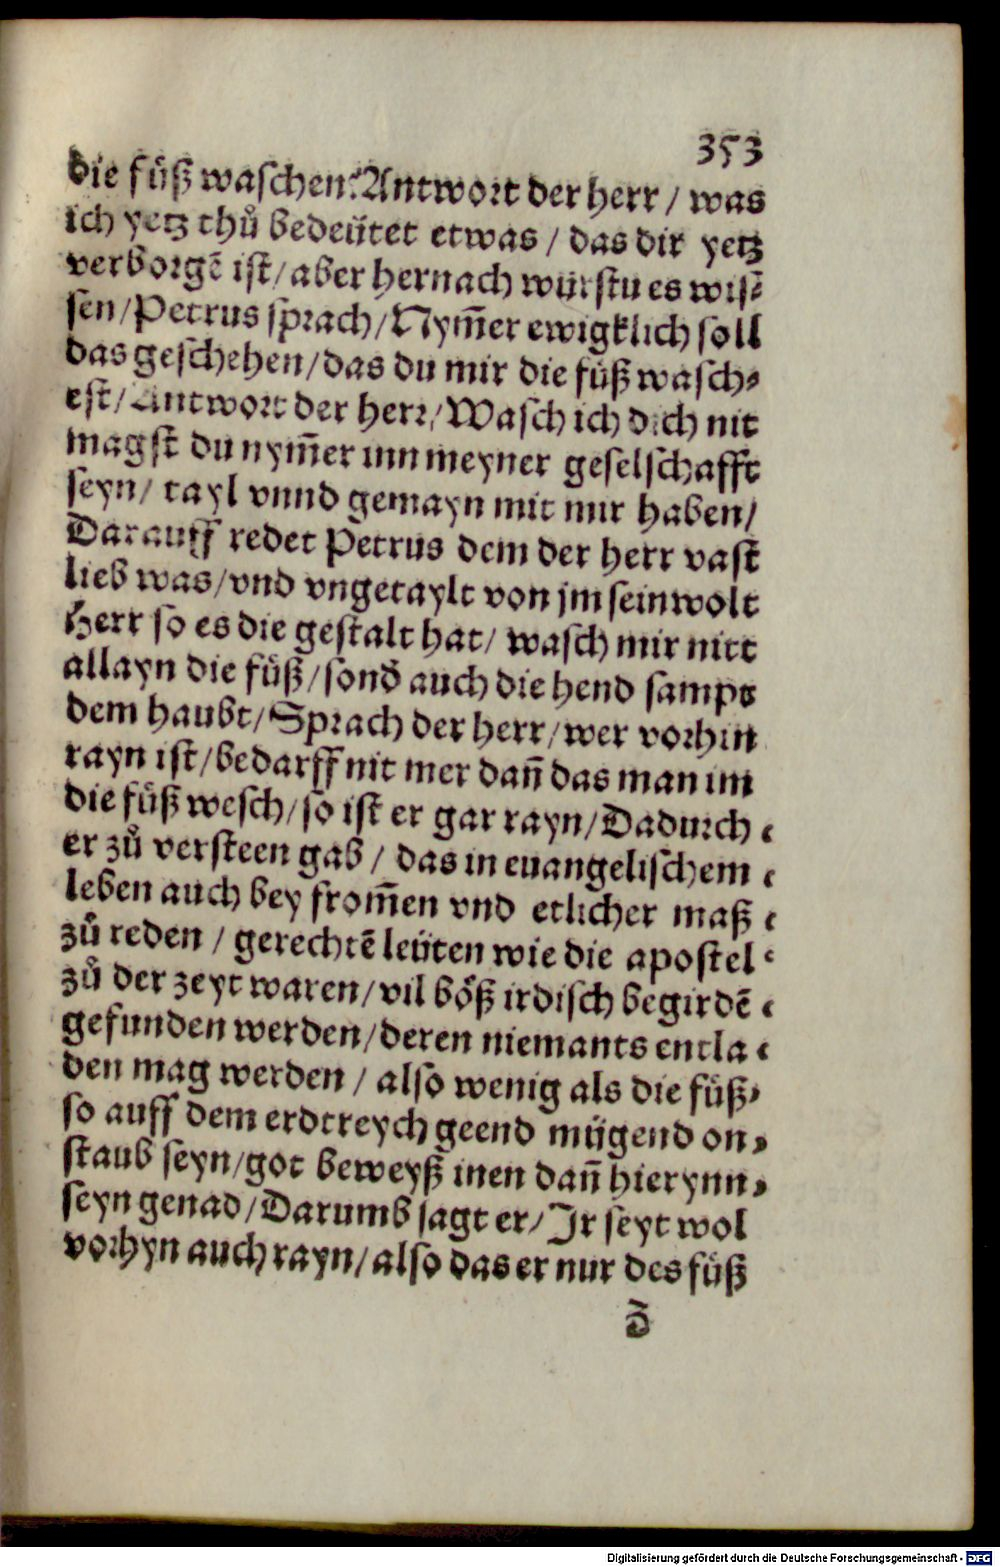 353
die fuͤß waschen? Antwort der herr / was
ich yetz thuͦ bedeütet etwas / das dir yetz
verborgē ist / aber hernach würstu es wis⸗
sen / Petrus sprach / Nym̄er ewigklich soll
das geschehen / das du mir die fuͤß wasch⸗
est / Antwort der herr / Wasch ich dich nit
magst du nym̄er inn meyner geselschafft
seyn / tayl vnnd gemayn mit mir haben /
Darauff redet Petrus dem der herr vast
lieb was / vnd vngetaylt von jm sein wolt
Herr so es die gestalt hat / wasch mir nitt
allayn die fuͤß / sonđ auch die hend sampt
dem haubt / Sprach der herr / wer vorhin
rayn ist / bedarff nit mer dañ das man im
die fuͤß wesch / so ist er gar rayn / Dadurch
er zuͦ versteen gab / das in euangelischem
leben auch bey from̄en vnd etlicher maß
zuͦ reden / gerechtē leüten wie die apostel
zuͦ der zeyt waren / vil boͤß irdisch begirdē
gefunden werden / deren niemants entla
den mag werden / also wenig als die fuͤß⸗
so auff dem erdtreych geend mügend on⸗
staub seyn / got beweyß inen dañ hierynn⸗
seyn genad / Darumb sagt er / Jr seyt wol
vorhyn auch rayn / also das er nur des fuͤß
đ
Digitalisierung gefördert durch die Deutsche Forschungsgemeinschaft - DFG